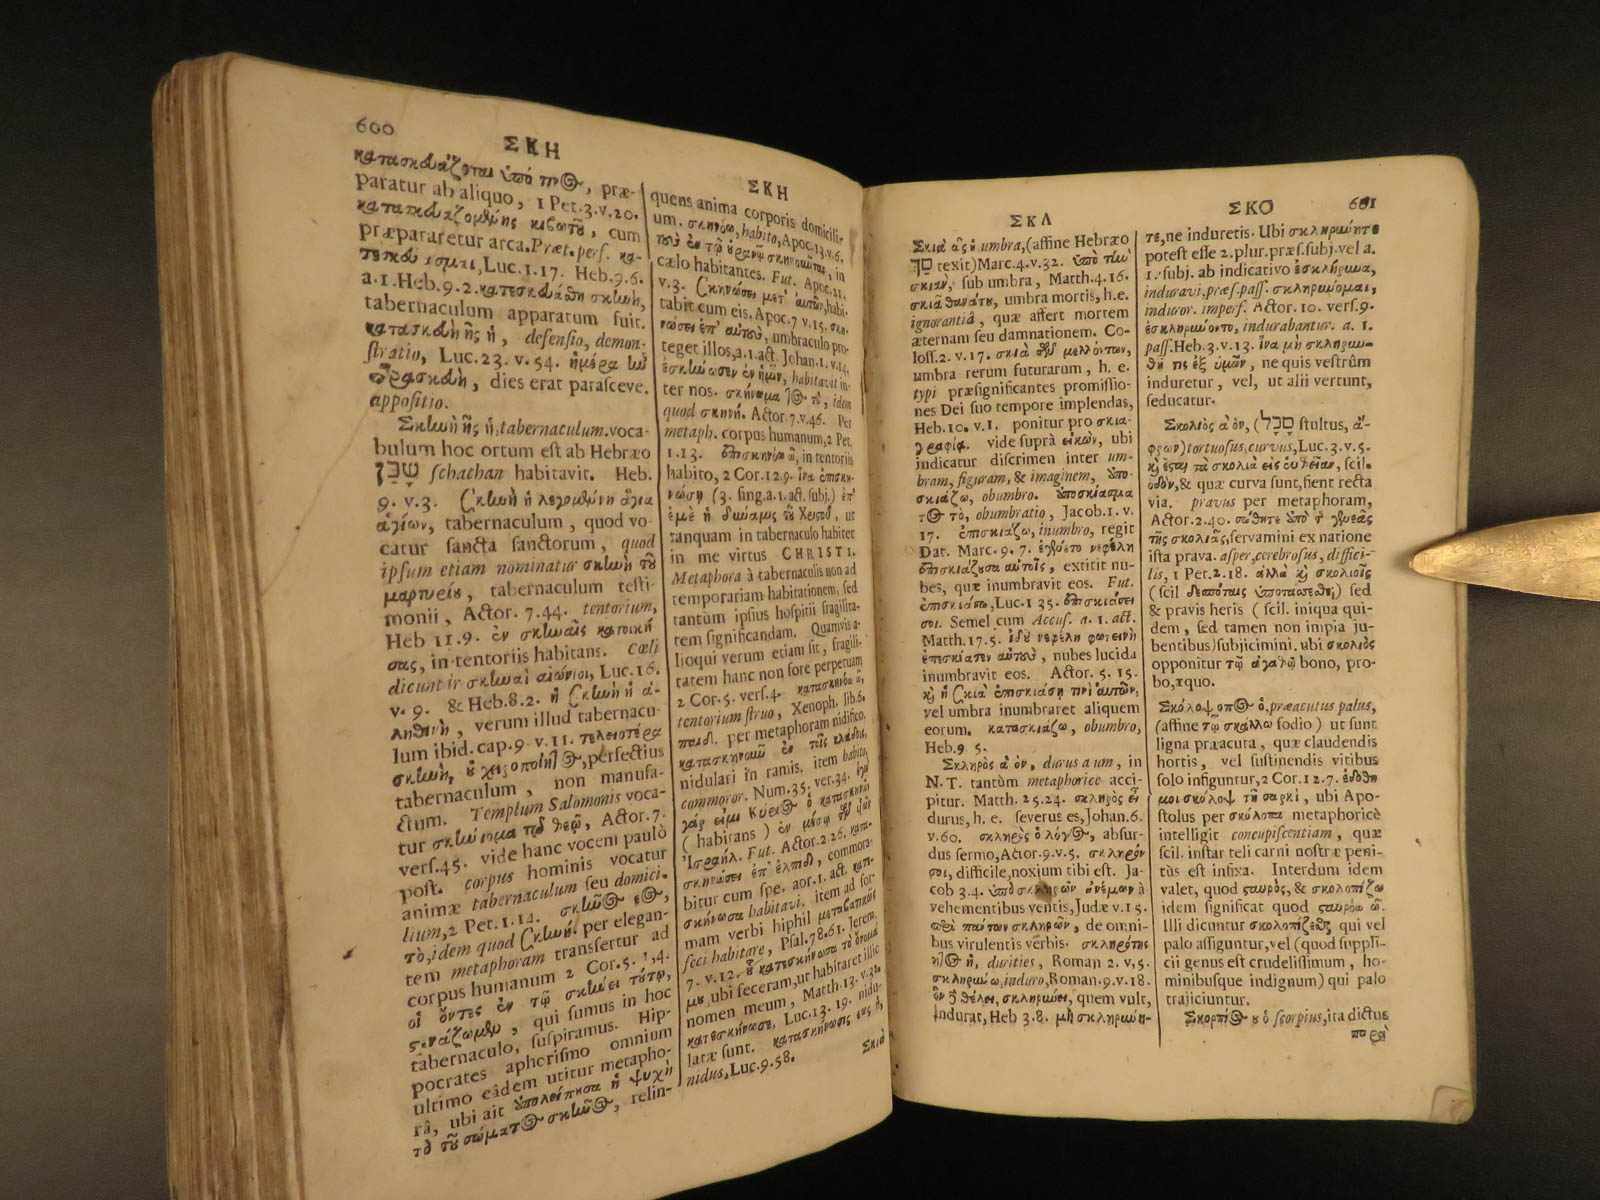 600
ΣΚΗ
κατασκευάζεται ὑπό τινος, præ-
paratur ab aliquo, 1 Pet. 3. v. 20.
κατασκευαζομένης κιβωτοῦ, cum
præpararetur arca. Præt. perf. κα-
Luc. 1. 17. Heb. 9. 6.
a. 1. Heb. 9. 2. κατεσκευάσθη σκηνὴ,
tabernaculum apparatum fuit.
defensio, demon-
stratio, Luc. 23. v. 54. ἡμέρα ἦν
dies erat parasceve.
appositio.
Σκηνὴ ῆς ἡ, tabernaculum. voca-
bulum hoc ortum est ab Hebræo
שָׁכַן schathan habitavit. Heb.
9. v. 3. σκηνὴ ἡ λεγομένη ἅγια
ἁγίων, tabernaculum, quod vo-
catur sancta sanctorum, quod
ipsum etiam nominatur σκηνὴ τοῦ
μαρτυρίου, tabernaculum testi-
monii, Actor. 7. 44. tentorium,
Heb 11. 9. ἐν σκηναῖς κατοική
σας, in tentoriis habitans. Cœli
dicuntur σκηναὶ αἰώνιοι, Luc. 16.
v. 9. & Heb. 8. 2. ἡ σκηνὴ ἡ ἀ-
ληθινὴ, verum illud tabernacu-
lum ibid. cap. 9 v. 11. τελειοτέρα
σκηνὴ, οὐ χειροποίητος, perfectius
tabernaculum, non manufa-
ctum. Templum Salomonis voca-
tur σκήνωμα τῷ θεῷ, Actor. 7.
vers. 45. vide hanc vocem paulò
post. corpus hominis vocatur
animæ tabernaculum seu domici-
lium, 2 Pet. 1. 14. σκῆνος εος,
τὸ, idem quod σκηνὴ. per elegan-
tem metaphoram transfertur ad
corpus humanum 2 Cor. 5. 1, 4.
οἱ ὄντες ἐν τῷ σκήνει τούτῳ,
στενάζομεν, qui sumus in hoc
tabernaculo, suspiramus. Hip-
pocrates aphorismo omnium
ultimo eâdem utitur metapho-
râ, ubi ait ὑπολείπησα ἡ ψυχὴ
τὸ τοῦ σώματος σκῆνος, relin-
ΣΚΗ
quens anima corporis domicili-
um. σκηνόω, habito, Apoc. 13. v. 6.
τοὺς ἐν τῷ οὐρανῷ σκηνοῦντας, in
cælo habitantes. Fut. Apoc. 21.
v. 3. σκηνώσει μετ' αὐτῶν, habi-
tabit cum eis. Apoc. 7 v. 15. σκη-
νώσει ἐπ' αὐτοὺς, umbraculo pro-
teget illos, a. 1. act. Johan. 1. v. 14,
ἐσκήνωσεν ἐν ἡμῖν, habitavit in-
ter nos. σκήνωμα τος τὸ, idem
quod σκηνή. Actor. 7. v. 46. Per
metaph. corpus humanum, 2 Pet.
1. 13. ἐπισκηνόω ῶ, in tentoriis
habito, 2 Cor. 12. 9. ἵνα ἐπισκη-
νώσῃ (3. sing. a. 1. act. subj.) ἐπ'
ἐμὲ ἡ δύναμις τοῦ Χριστοῦ, ut
tanquam in tabernaculo habitet
in me virtus CHRISTI.
Metaphora à tabernaculis non ad
temporariam habitationem, sed
tantùm ipsius hospitii fragilita-
tem significandam. Quamvis a-
lioqui verum etiam sit, fragili-
tatem hanc non fore perpetuam
2 Cor. 5. vers. 4. κατασκηνόω ῶ,
tentorium struo, Xenoph. lib. 6.
παιδ. per metaphoram nidifico,
κατασκηνοῦν ἐν τοῖς κλάδοις,
nidulari in ramis. item habito,
commoror. Num. 35. ver. 34. ἐγὼ
γάρ εἰμι Κύριος ὁ κατασκηνῶν
(habitans) ἐν μέσῳ τῶν υἱῶν
Ἰσραήλ. Fut. Actor. 2. 26. κατα-
σκηνώσει ἐπ' ἐλπίδι, commora-
bitur cum spe. aor. 1. act. κατε-
σκήνωσα habitavi. item ad for-
mam verbi hiphil μεταβατικῶς
feci habitare, Psal. 78. 61. Jerem.
7. v. 12. οὗ κατεσκήνωσα τὸ ὄνομά
μου, ubi feceram, ut habitaret illic
nomen meum, Matth. 13. v. 32.
κατεσκήνωσε, Luc. 13. 19. nidu-
latæ sunt. κατασκήνωσις εως ἡ,
nidus, Luc. 9. 58.
Σκιὰ
ΣΚΛ
Σκιὰ ᾶς ἡ umbra, (affine Hebræo
סָךְ texit) Marc. 4. v. 32. ὑπὸ τὴν
σκιὰν, sub umbra, Matth. 4. 16.
σκιᾷ θανάτου, umbra mortis, h. e.
ignorantiâ, quæ affert mortem
æternam seu damnationem. Co-
loss. 2. v. 17. σκιὰ τῶν μελλόντων,
umbra rerum futurarum, h. e.
typi præsignificantes promissio-
nes Dei suo tempore implendas,
Heb. 10. v. 1. ponitur pro σκια-
γραφία. vide suprà εἰκὼν, ubi
indicatur discrimen inter um-
bram, figuram, & imaginem, ὑπο-
σκιάζω, obumbro. ὑποσκίασμα
τος τὸ, obumbratio, Jacob. 1. v.
17. ἐπισκιάζω, inumbro, regit
Dat. Marc. 9. 7. ἐγένετο νεφέλη
ἐπισκιάζουσα αὐτοῖς, extitit nu-
bes, quæ inumbravit eos. Fut.
ἐπισκιάσω, Luc. 1 35. ἐπισκιάσει
σοι. Semel cum Accus. a. 1. act.
Matth. 17. 5. ἰδοὺ νεφέλη φωτεινὴ
ἐπεσκίασεν αὐτοὺς, nubes lucida
inumbravit eos. Actor. 5. 15.
κἂν ἡ σκιὰ ἐπισκιάσῃ τινὶ αὐτῶν,
vel umbra inumbraret aliquem
eorum. κατασκιάζω, obumbro,
Heb. 9 5.
Σκληρὸς ὰ ὸν, durus a um, in
N. T. tantùm metaphorice acci-
pitur. Matth. 25. 24. σκληρὸς εἶ
durus, h. e. severus es, Johan. 6.
v. 60. σκληρὸς ὁ λόγος, absur-
dus sermo, Actor. 9. v. 5. σκληρόν
σοι, difficile, noxium tibi est. Ja-
cob 3. 4. ὑπὸ σκληρῶν ἀνέμων à
vehementibus ventis, Judæ v. 15.
περὶ πάντων σκληρῶν, de omni-
bus virulentis verbis. σκληρότης
τητος ἡ, durities, Roman 2. v, 5.
σκληρύνω, induro, Roman. 9. v. 18.
ὃν δὲ θέλει, σκληρύνει, quem vult,
indurat, Heb 3. 8. μὴ σκληρύνη-
ΣΚΟ
601
τε, ne induretis. Ubi σκληρύνητε
potest esse 2. plur. præs. subj. vel a.
1. subj. ab indicativo ἐσκλήρυνα,
induravi, præs. pass. σκληρύνομαι,
induror. imperf. Actor. 10. vers. 9.
ἐσκληρύνοντο, indurabantur. a. 1.
pass. Heb. 3. v. 13. ἵνα μὴ σκληρυν-
θῇ τις ἐξ ὑμῶν, ne quis vestrûm
induretur, vel, ut alii vertunt,
seducatur.
Σκολιὸς ὰ ὸν, (סָכָל stultus, ἄ-
φρων) tortuosus, curvus, Luc. 3. v. 5.
καὶ ἔσται τὰ σκολιὰ εἰς εὐθεῖαν, scil.
ὁδὸν, & quæ curva sunt, fient recta
via. pravus per metaphoram,
Actor. 2. 40. σώθητε ἀπὸ τῆς γενεᾶς
τῆς σκολιᾶς, servamini ex natione
ista prava. asper, cerebrosus, diffici-
lis, 1 Pet. 2. 18. ἀλλὰ καὶ σκολιοῖς
(scil δεσπόταις ὑποτάσσεσθε) sed
& pravis heris (scil. iniqua qui-
dem, sed tamen non impia ju-
bentibus) subjicimini. ubi σκολιὸς
opponitur τῷ ἀγαθῷ bono, pro-
bo, æquo.
Σκόλοψ οπος ὁ, præacutus palus,
(affine τῷ σκάλλω fodio) ut sunt
ligna præacuta, quæ claudendis
hortis, vel sustinendis vitibus
solo infiguntur, 2 Cor. 12. 7. ἐδόθη
μοι σκόλοψ τῇ σαρκὶ, ubi Apo-
stolus per σκόλοπα metaphoricè
intelligit concupiscentiam, quæ
scil. instar teli carni nostræ peni-
tùs est infixa. Interdum idem
valet, quod σταυρὸς, & σκολοπίζω
idem significat quod σταυρόω ῶ.
Illi dicuntur σκολοπίζεσθαι qui vel
palo affiguntur, vel (quod suppli-
cii genus est crudelissimum, ho-
minibusque indignum) qui palo
trajiciuntur.
Σκορπίος ου ὁ scorpius, ita dictus
παρὰ